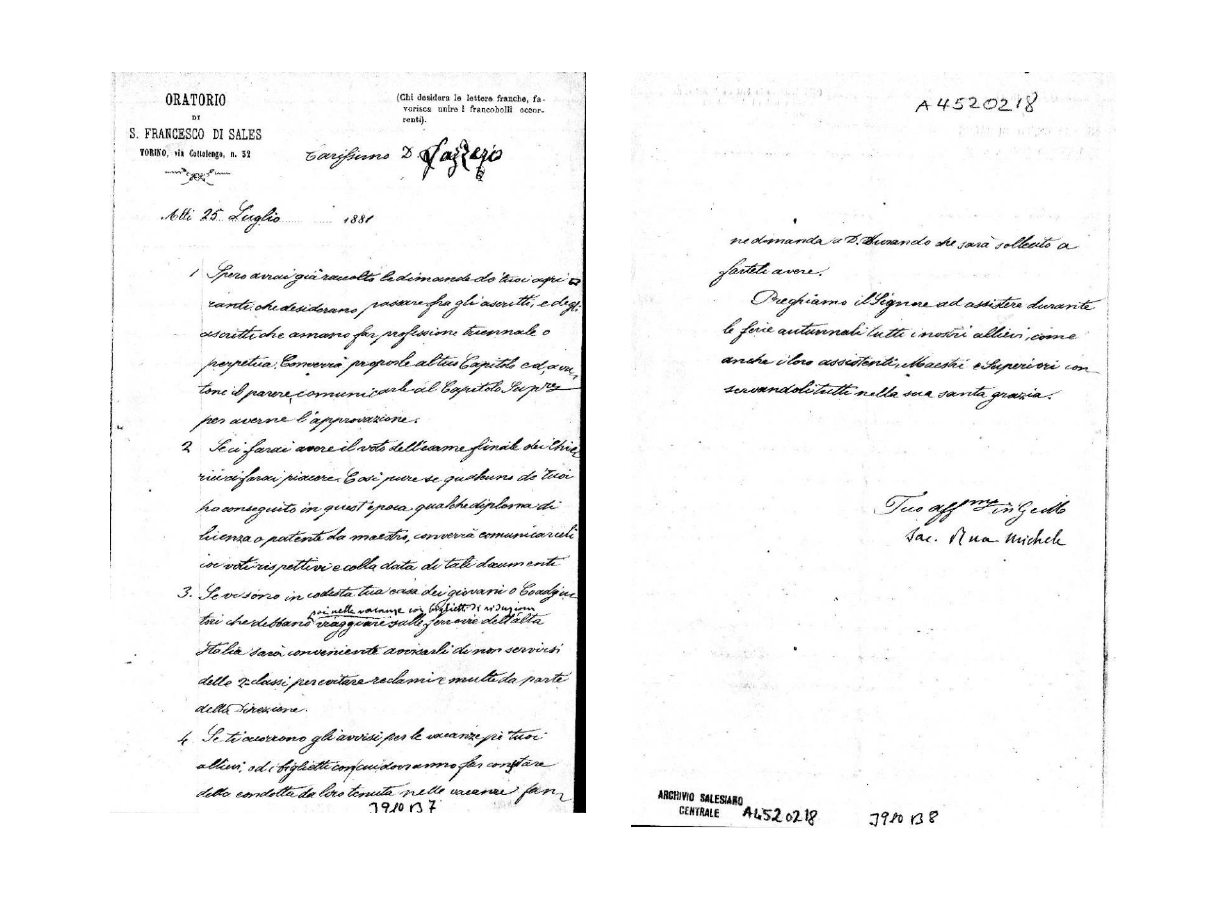 ORATORIO
DI
S. FRANCESCO DI SALES
TORINO, via Cottolengo, n. 32
(Chi desidera le lettere franche, fa-
vorisca unire i francobolli occor-
renti).
Carissimo D. Lazzero
Addì 25 Luglio 1881
1 Spero avrai già raccolto le dimande de' tuoi aspi
ranti che desiderano passare fra gli ascritti, e degli
ascritti che amano far professione triennale o
perpetua. Converrà proporle al tuo Capitolo ed avu
tone il parere comunicarle al Capitolo Supre
per averne l'approvazione.
2 Se ci farai avere il voto dell'esame finale dei Chie
rici ci farai piacere. Così pure se qualcuno de' tuoi
ha conseguito in quest'epoca qualche diploma di
licenza o patente da maestro, converrà comunicarceli
coi voti rispettivi e colla data di tali documenti
3. Se vi sono in codesta tua casa dei giovani o Coadju
poi nelle vacanze con biglietti di riduzione
tori che debbano viaggiare sulle ferrovie dell'alta
Italia sarà conveniente avvisarli di non servirsi
delle 2e classi per evitare reclami e multe da parte
della Direzione.
4 Se ti occorrono gli avvisi per le vacanze pe' tuoi
allievi, od i biglietti con cui dovranno far constare
della condotta da loro tenuta nelle vacanze fan
3910 B 7
A4520218
ne dimanda a D. Durando che sarà sollecito a
farteli avere.
Preghiamo il Signore ad assistere durante
le ferie autunnali tutti i nostri allievi, come
anche i loro assistenti, Maestri e Superiori con
servandoli tutti nella sua santa grazia.
Tuo affmo in G. e M.
Sac. Rua Michele
ARCHIVIO SALESIANO
CENTRALE A4520218
3910 B 8